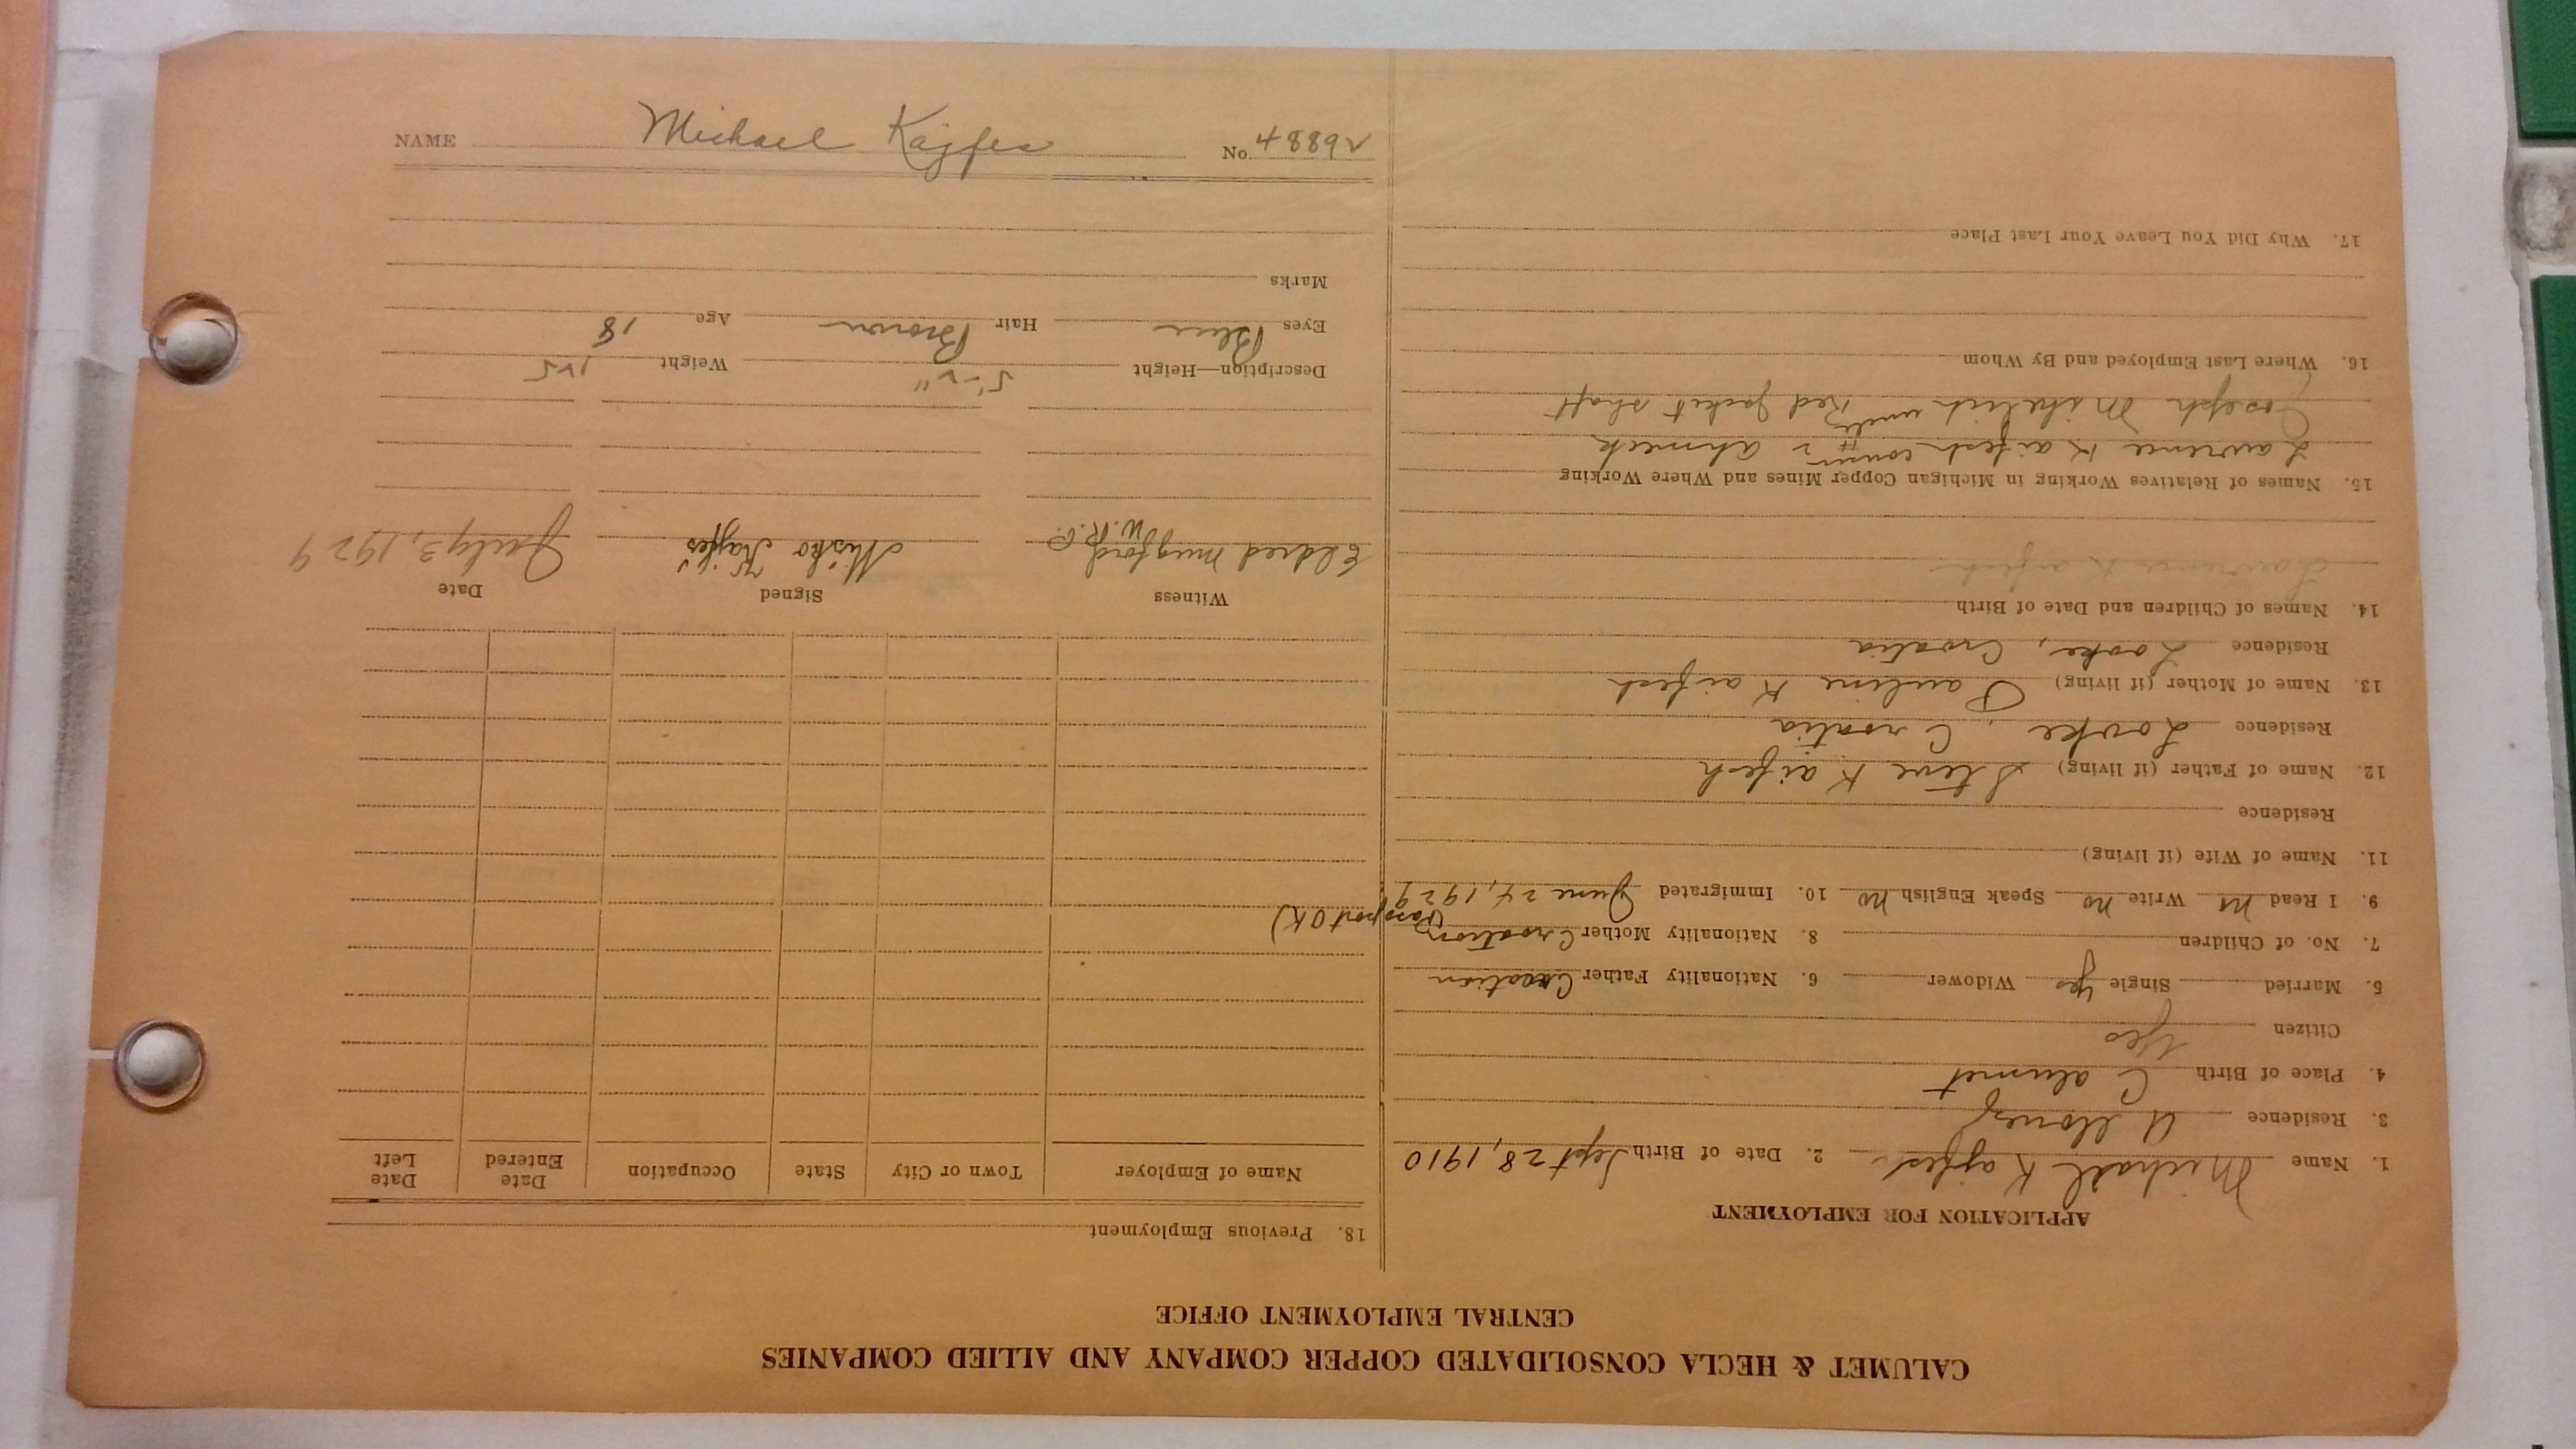 CALUMET & HECLA CONSOLIDATED COPPER COMPANY AND ALLIED COMPANIES
CENTRAL EMPLOYMENT OFFICE
APPLICATION FOR EMPLOYMENT
1. Name Michael Kajfes 2. Date of Birth Sept 28, 1910
3. Residence
4. Place of Birth Calumet
Citizen Yes
5. Married Single Yes Widower 6. Nationality Father Croation
7. No. of Children 8. Nationality Mother Croation
9. I Read no Write no Speak English no 10. Immigrated June 24, 1929
(Passport OK)
11. Name of Wife (if living)
Residence
12. Name of Father (if living) Steve Kaifesh
Residence Lovke, Croatia
13. Name of Mother (if living) Pauline Kaifesh
Residence Lovke, Croatia
14. Names of Children and Date of Birth
Lawrence Kaifesh
15. Names of Relatives Working in Michigan Copper Mines and Where Working
Lawrence Kaifesh cousin #2 Ahmeek
Joseph Mihelich uncle Red Jacket shaft
16. Where Last Employed and By Whom
17. Why Did You Leave Your Last Place
18. Previous Employment
Name of Employer Town or City State Occupation Date Entered Date Left
Witness Signed Date
Eldred Mugford Misko Kajfeš July 3, 1929
W.R.P.
Description—Height 5'-2" Weight 125
Eyes Blue Hair Brown Age 18
Marks
NAME Michael Kajfes No. 48892